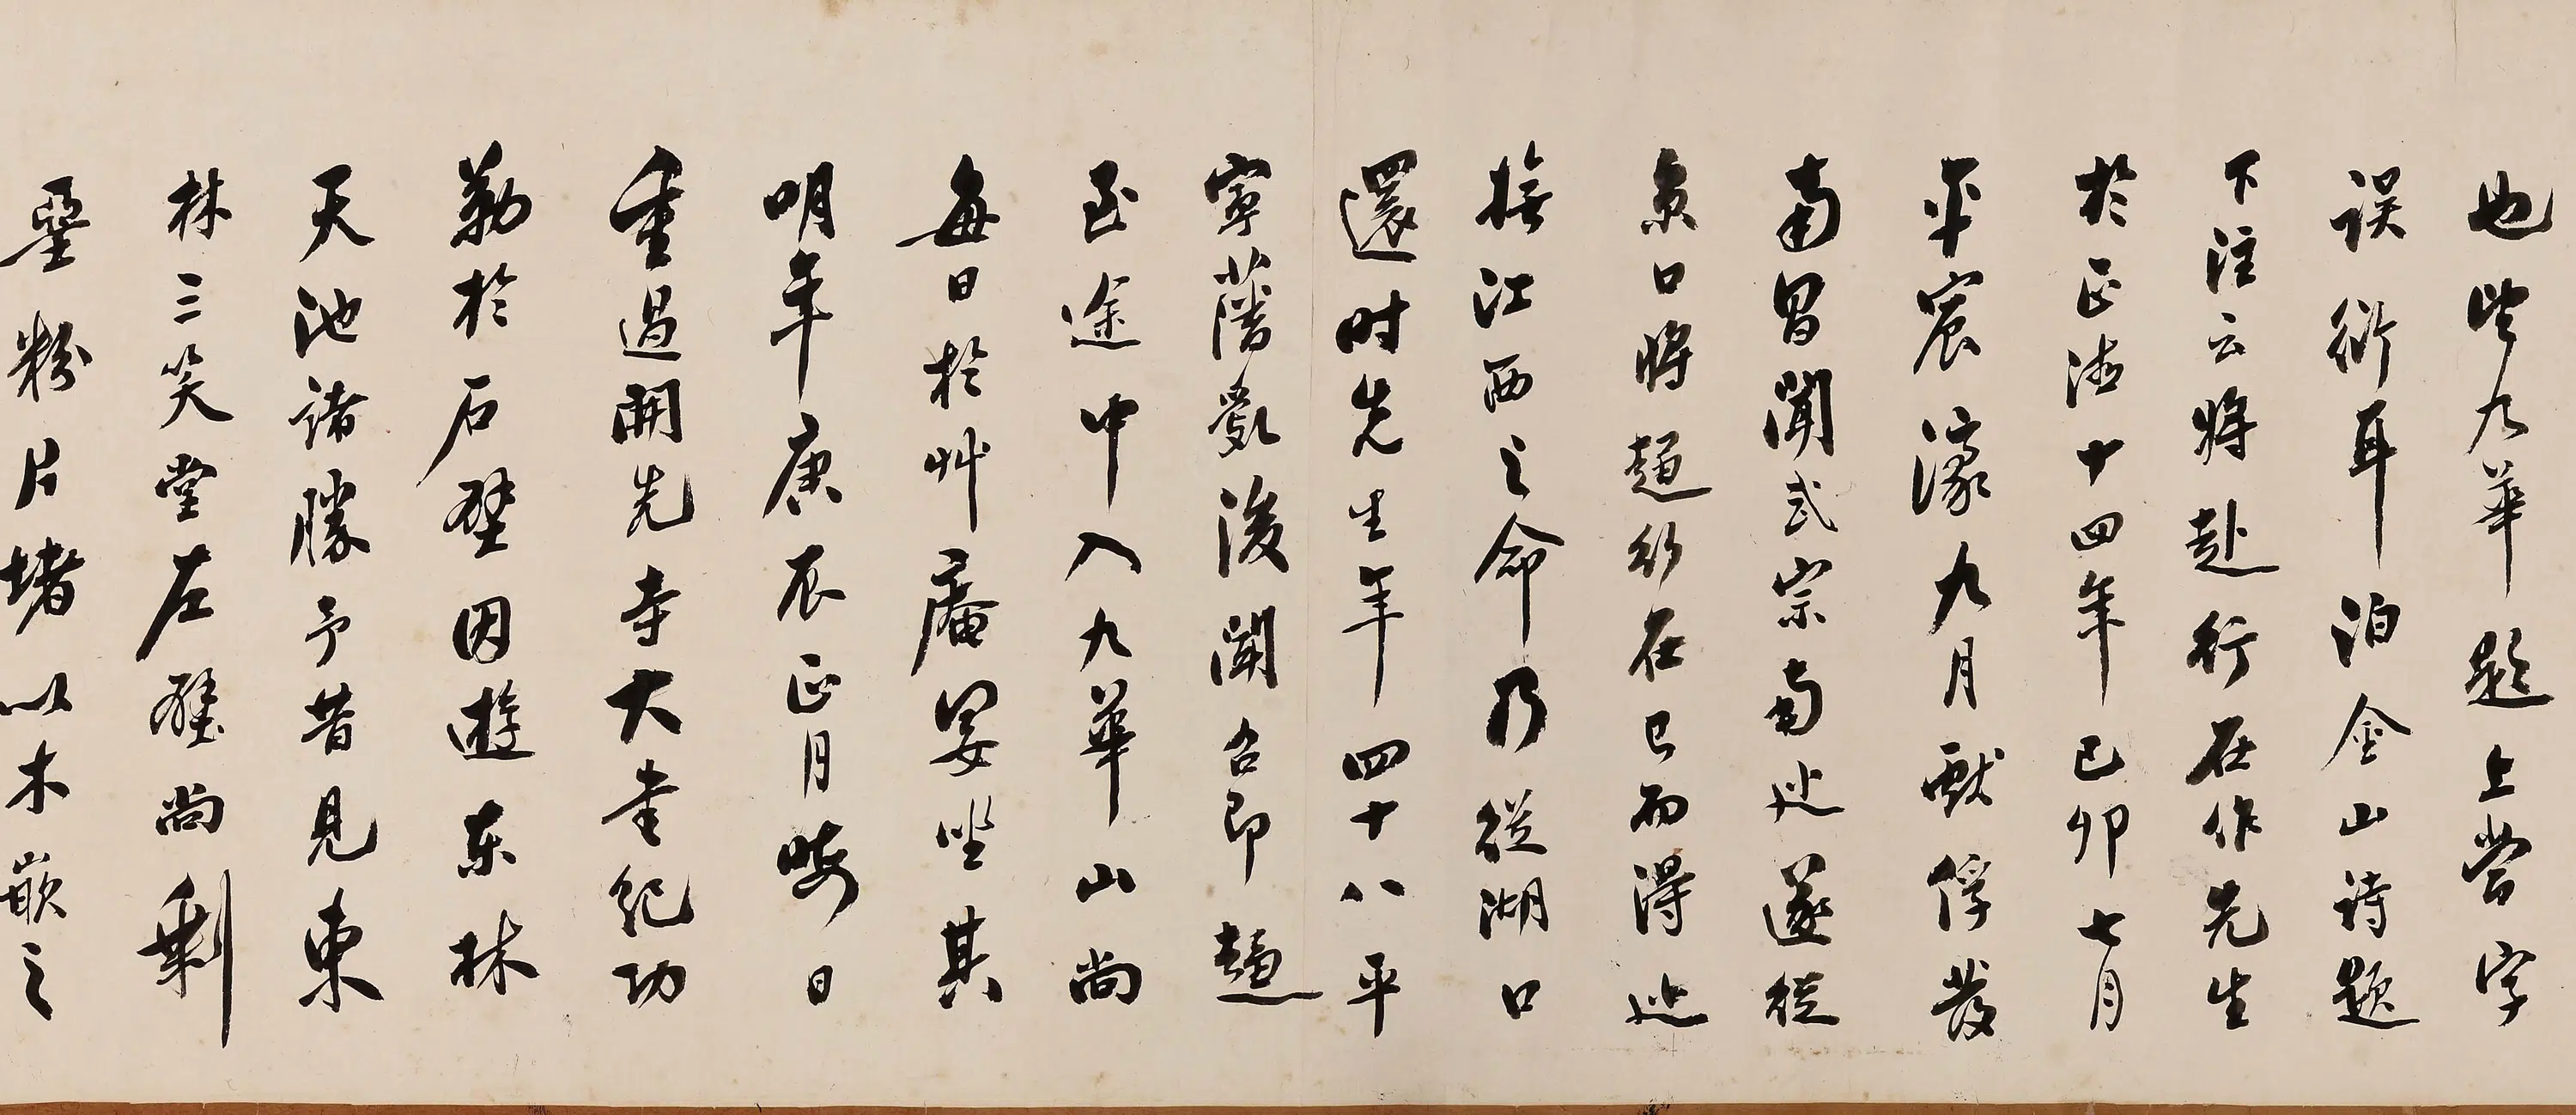 也望九華題上當字
误衍耳泊金山诗题
下注云将赴行在作先生
於正德十四年己卯七月
平宸濠九月獻俘發
南昌聞武宗南巡遂從
京口將趨行在已而得巡
撫江西之命乃從湖口
還时先生年四十八平
寧藩亂後聞召即趨
至途中入九華山尚
每日於艸庵晏坐其
明年庚辰正月晦日
重過開先寺大書纪功
勒於石壁因遊东林
天池诸勝予昔見東
林三笑堂左壁尚剩
堊粉片堵以木嵌之